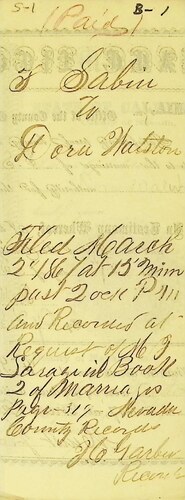 S-1 B-1
(Paid)
Sabin
To
Dora Watston
Filed March
2 1867 at 15 Min
past 2 ock P M
and Recorded at
Request of
in Book
2 of Marriages
Page 319 Nevada
County Records